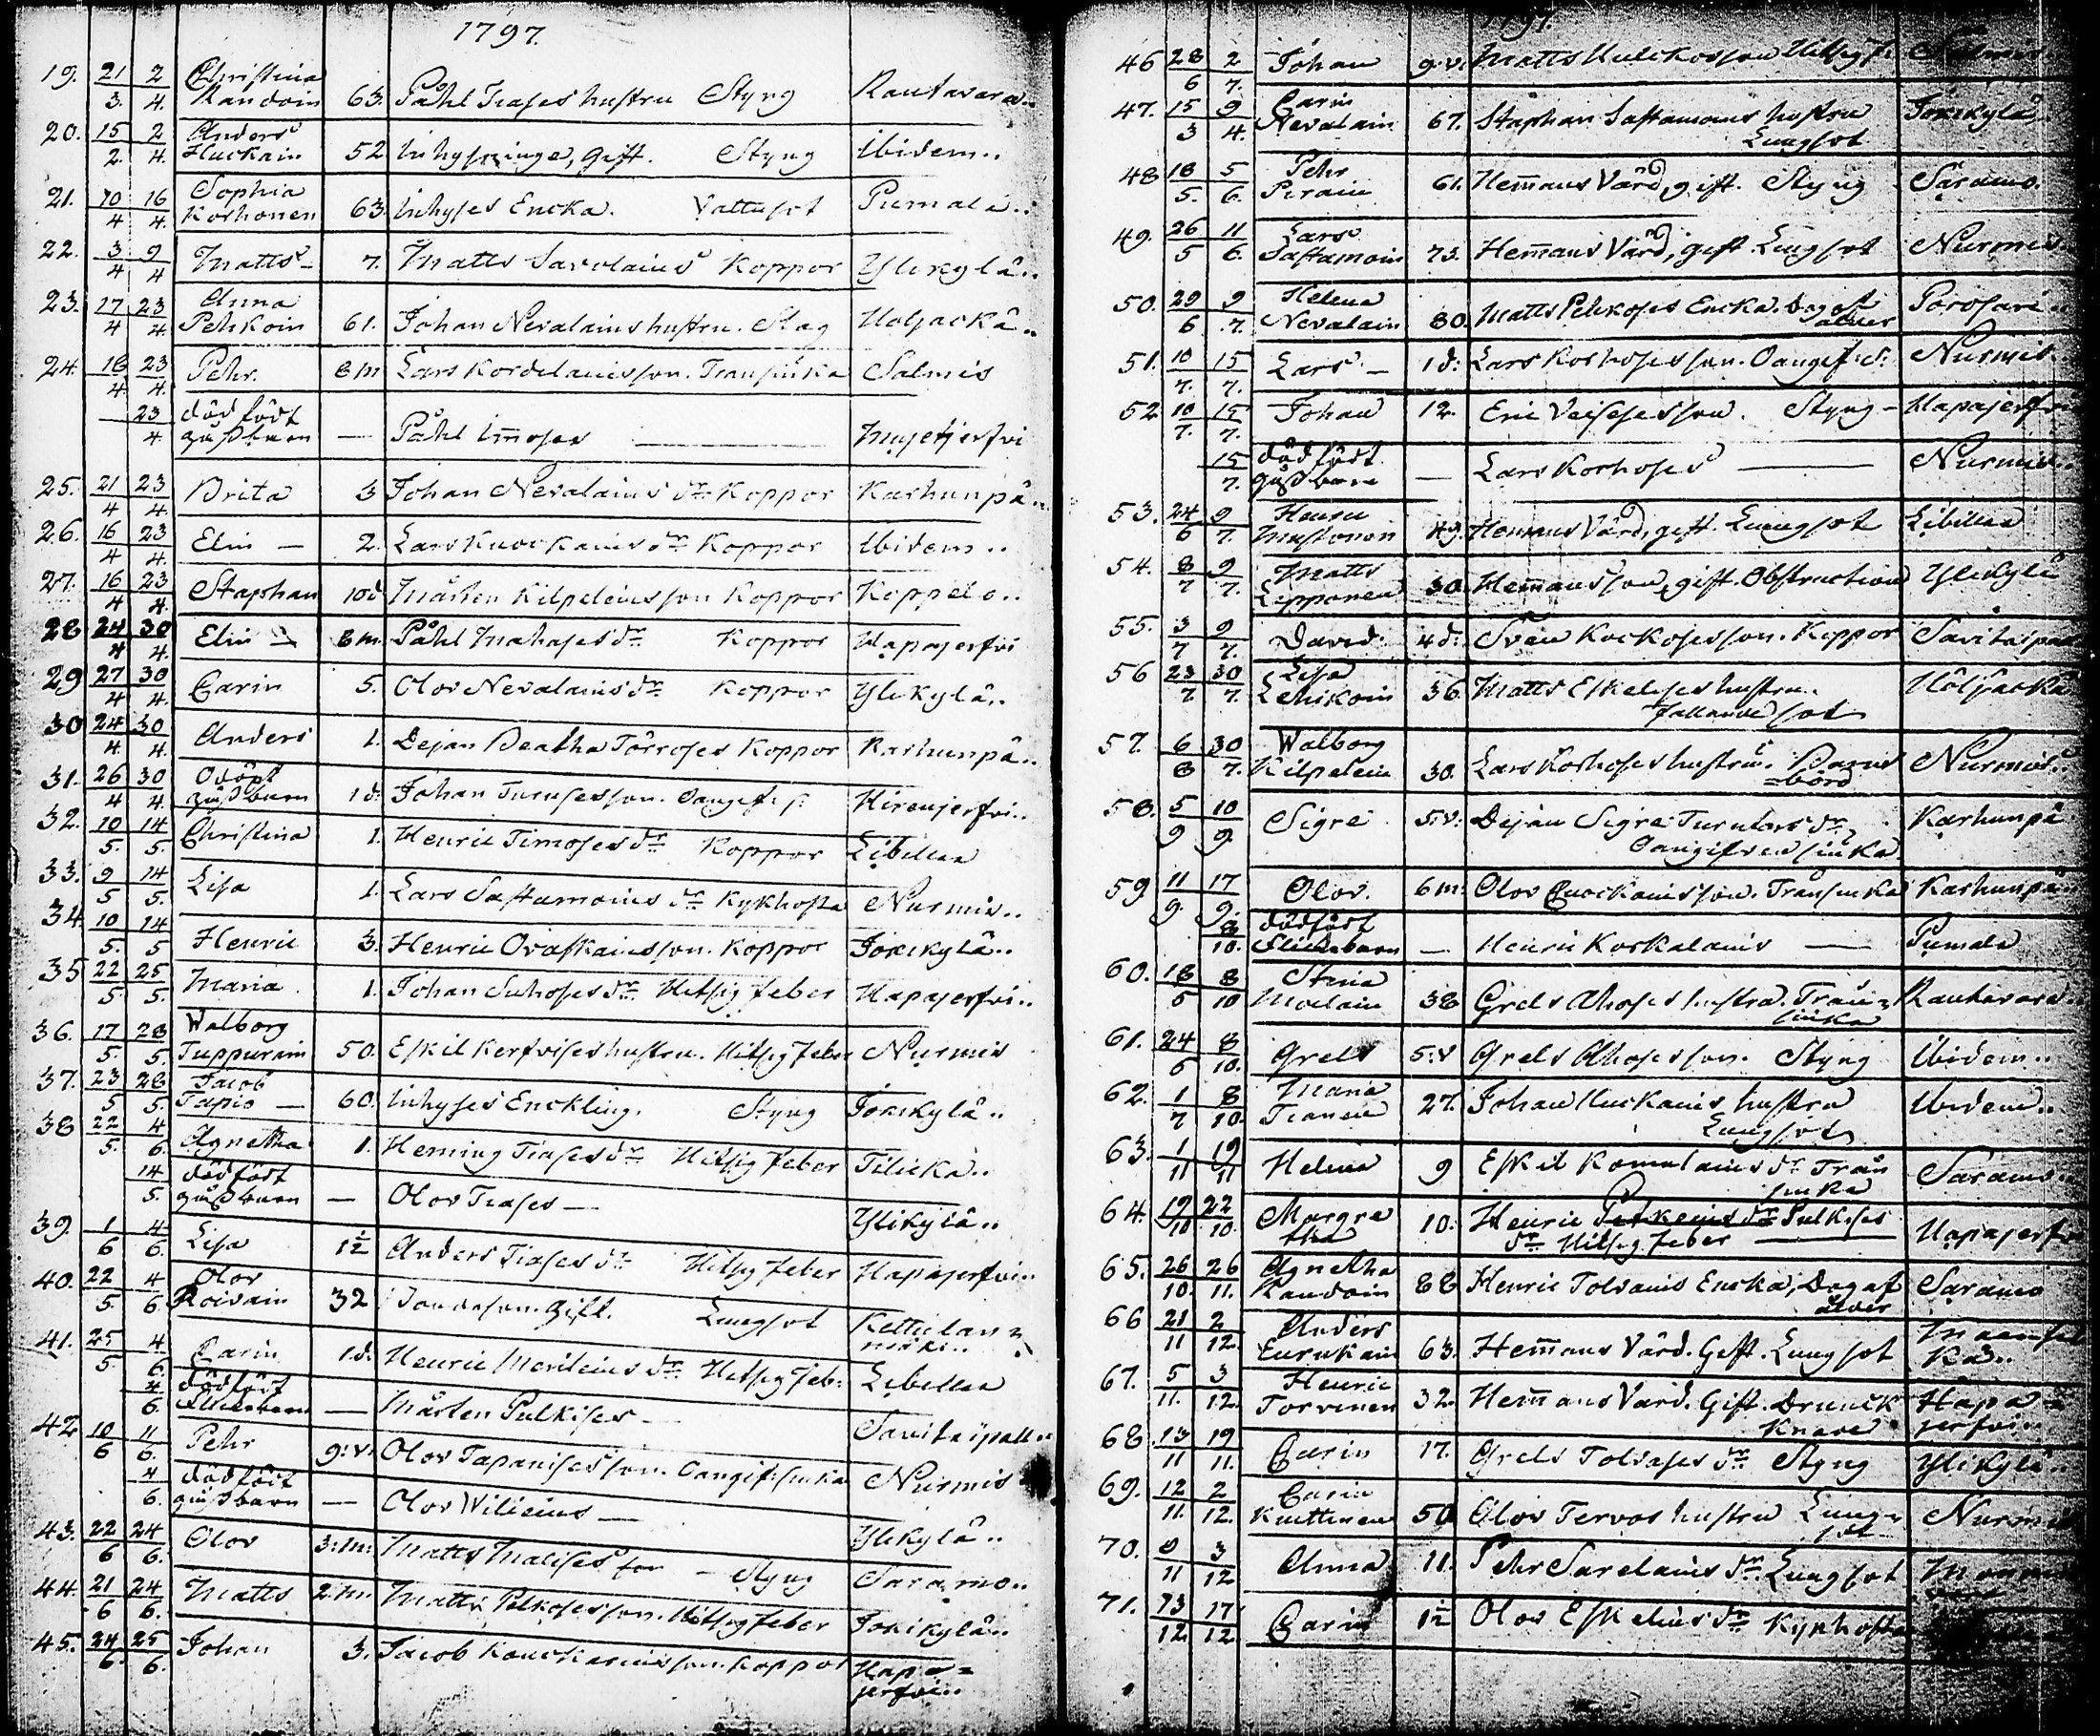 1797.
19. 21/3. 2/4. Christina Randoin 63. Påhl Tiases hustru Styng Rautavara..
20. 15/2. 2/4. Anders Huckain 52 Inhysinge, gift. Styng Ibidem..
21. 10/4 16/4. Sophia Korhonen 63. Inhyses Encka. Vattusot Pumala..
22. 3/4 9/4 Matts – 7. Matts Savolains Koppor Ylikylä..
23. 17/4 23/4. Anna Pehkoin 61. Johan Nevalains hustru. Slag Höljäckä..
24. 18/4. 23/4. Pehr. 8m Lars Kordelainsson. Transiuka Salmis
23/4 dödfödt gåssbarn — Påhl Immoses — Mujejerfvi
25. 21/4 23/4. Brita 3 Johan Nevalains dr Koppor Karhunpä..
26. 16/4 23/4. Elin – 2. Lars Kuockains dr Koppor Ibidem..
27. 16/4 23/4. Staphan 10d Mårten Kilpeleinsson Koppor Koppelo..
28 24/4 30/4. Elin – 8m. Påhl Mahoses dr Koppor Hapajerfvi
29 27/4 30/4. Carin 5. Olov Nevalains dr Koppor Ylikylä..
30 24/4 30/4. Anders 1. Dejan Beatha Törroses Koppor Karhunpä..
31. 26/4 30/4. Odöpt gåssbarn 1d: Johan Turusesson. Oangif: s: Hirvijerfvi..
32. 10/5. 14/5. Christina 1. Henric Timoses dr Koppor Libelitz
33. 9/5 14/5. Lisa 1. Lars Sastamoins dr Kykhosta Nurmis..
34 10/5. 14/5 Henric 3. Henric Ovaskainsson. Koppor Jokikylä..
35 22/5 25/5. Maria. 1. Johan Suhoses dr Hitsig feber Hapajerfvi..
36. 17/5. 28/5. Walborg Tuppurain 50. Eskil Kerfvises hustru. Hitsig feber Nurmis
37. 23/5 28/5. Jacob Tapio – 60. Inhyses Enckling. Styng Jokikylä..
38 22/5. 4/6. Agnetha 1. Heming Tiases dr Hitsig feber Tilicka..
14/5. dödfödt gåssbarn — Olov Tiases — Ylikylä..
39. 1/6 4/6. Lisa 1½ Anders Tiases dr Hitsig feber Hapajerfvi..
40. 22/5. 4/6. Olov Roivain 32 Bondeson. gift. Lungsot Kettulan=
niemi..
41. 25/5 4/6. Carin 1d. Henric Meriläins dr Hitsig feb: Libelitz
4/6. dödfödt flickebarn — Mårten Pulkises — Savikaipall..
42 10/6 11/6. Pehr 9:v. Olov Tapanisesson. Oangif: siuka Nurmis
4/6. dödfödt gåssbarn — Olov Wilieins — Ylikylä..
43. 22/6 24/6. Olov 3:m: Matts Malises son – Styng Saramo..
44. 21/6 24/6. Matts 2.m. Matts Pelkosesson. Hitsig feber Jokikylä..
45. 24/6. 25/6. Johan 3. Jacob Kouckarinsson. Koppor Hapa=
jerfvi..
1797.
46 28/6 2/7. Johan 9.v. Matts Hulckosson Hitsig f: Salmis
47. 15/3 9/4. Carin Nevalain 67. Staphan Sastamoins hustru Jokikylä
Lungsot
48 18/5. 5/6. Pehr Purain 61. Hemans Värd, gift. Styng Saramo.
49. 26/5 11/6. Lars Sastamoin 75. Hemans Värd, gift Lungsot Nurmis
50. 29/6 9/7. Helena Nevalain 80. Matts Pehkoses Encka. Dog af Porosari..
ålder
51. 10/7. 15/7. Lars – 1d: Lars Korhoses son. Oangif: s: Nurmis
52 10/7. 15/7. Johan 12. Eric Veisesesson. Styng – Hapajerfvi
15/7. dödfödt gåssbarn — Lars Korhoses — Nurmis..
53. 24/6 9/7. Henric Mustonen 49. Hemans Värd, gift. Lungsot Libelitz
54. 8/7 9/7. Matts Lipponen 30. Hemansson, gift. Obstruction Ylikylä
55. 3/7 9/7. David 4d: Sven Kockosesson. Koppor Savikaipall
56 23/7 30/7. Lisa Lehikoin 36. Matts Eskelises hustru. Höljäckä
fallande sot
57. 6/8 30/7. Walborg Kilpelein 30. Lars Korhoses hustru. Barns Nurmis..
=börd
58. 5/9 10/9. Sigre 5.v. Dejan Sigre Turutars dr, Karhunpä
Oangifven siuka
59 11/9. 17/9. Olov. 6m: Olov Quockainsson. Transiuka Karhunpä..
8/10. dödfödt flickebarn — Henric Korkalains — Pumala
60. 18/5 8/10 Stina Moilain 38 Grels Ahoses hustru. Tran= Rautavara..
siuka
61. 24/6 8/10. Grels 5:v Grels Ahoses son. Styng Ibidem..
62. 1/7 8/10. Maria Tianen 27. Johan Huckains hustru Ibidem..
Lungsot
63. 1/11 19/11 Helena 9 Eskil Komulains dr Tran Saramo..
siuka
64. 19/10 22/10. Margre
tha 10. Henric Pulkises
dr Hitsig feber — Hapajerfv
65. 26/10. 26/11. Agnetha Kaudoin 88 Henric Tolvains Encka, Dog af Saramo
ålder
66 21/11 2/12. Anders Eurukain 63. Hemans Värd. Gift. Lungsot Maansel
kä..
67. 5/11. 3/12. Henric Torvinen 32. Hemans Värd. Gift. Drunck Hapa=
knade jerfvi..
68 13/11 19/11. Carin 17. Grels Tolvases dr Styng Ylikylä..
69. 12/11. 2/12. Carin Kuittinen 50 Olov Tervos hustru Lung= Nurmis
sot
70. 9/11 3/12 Anna 11. Pehr Sarelains dr. Lungsot
71. 13/12. 17/12. Carin 1½ Olov Eskelins dr Kykhosta